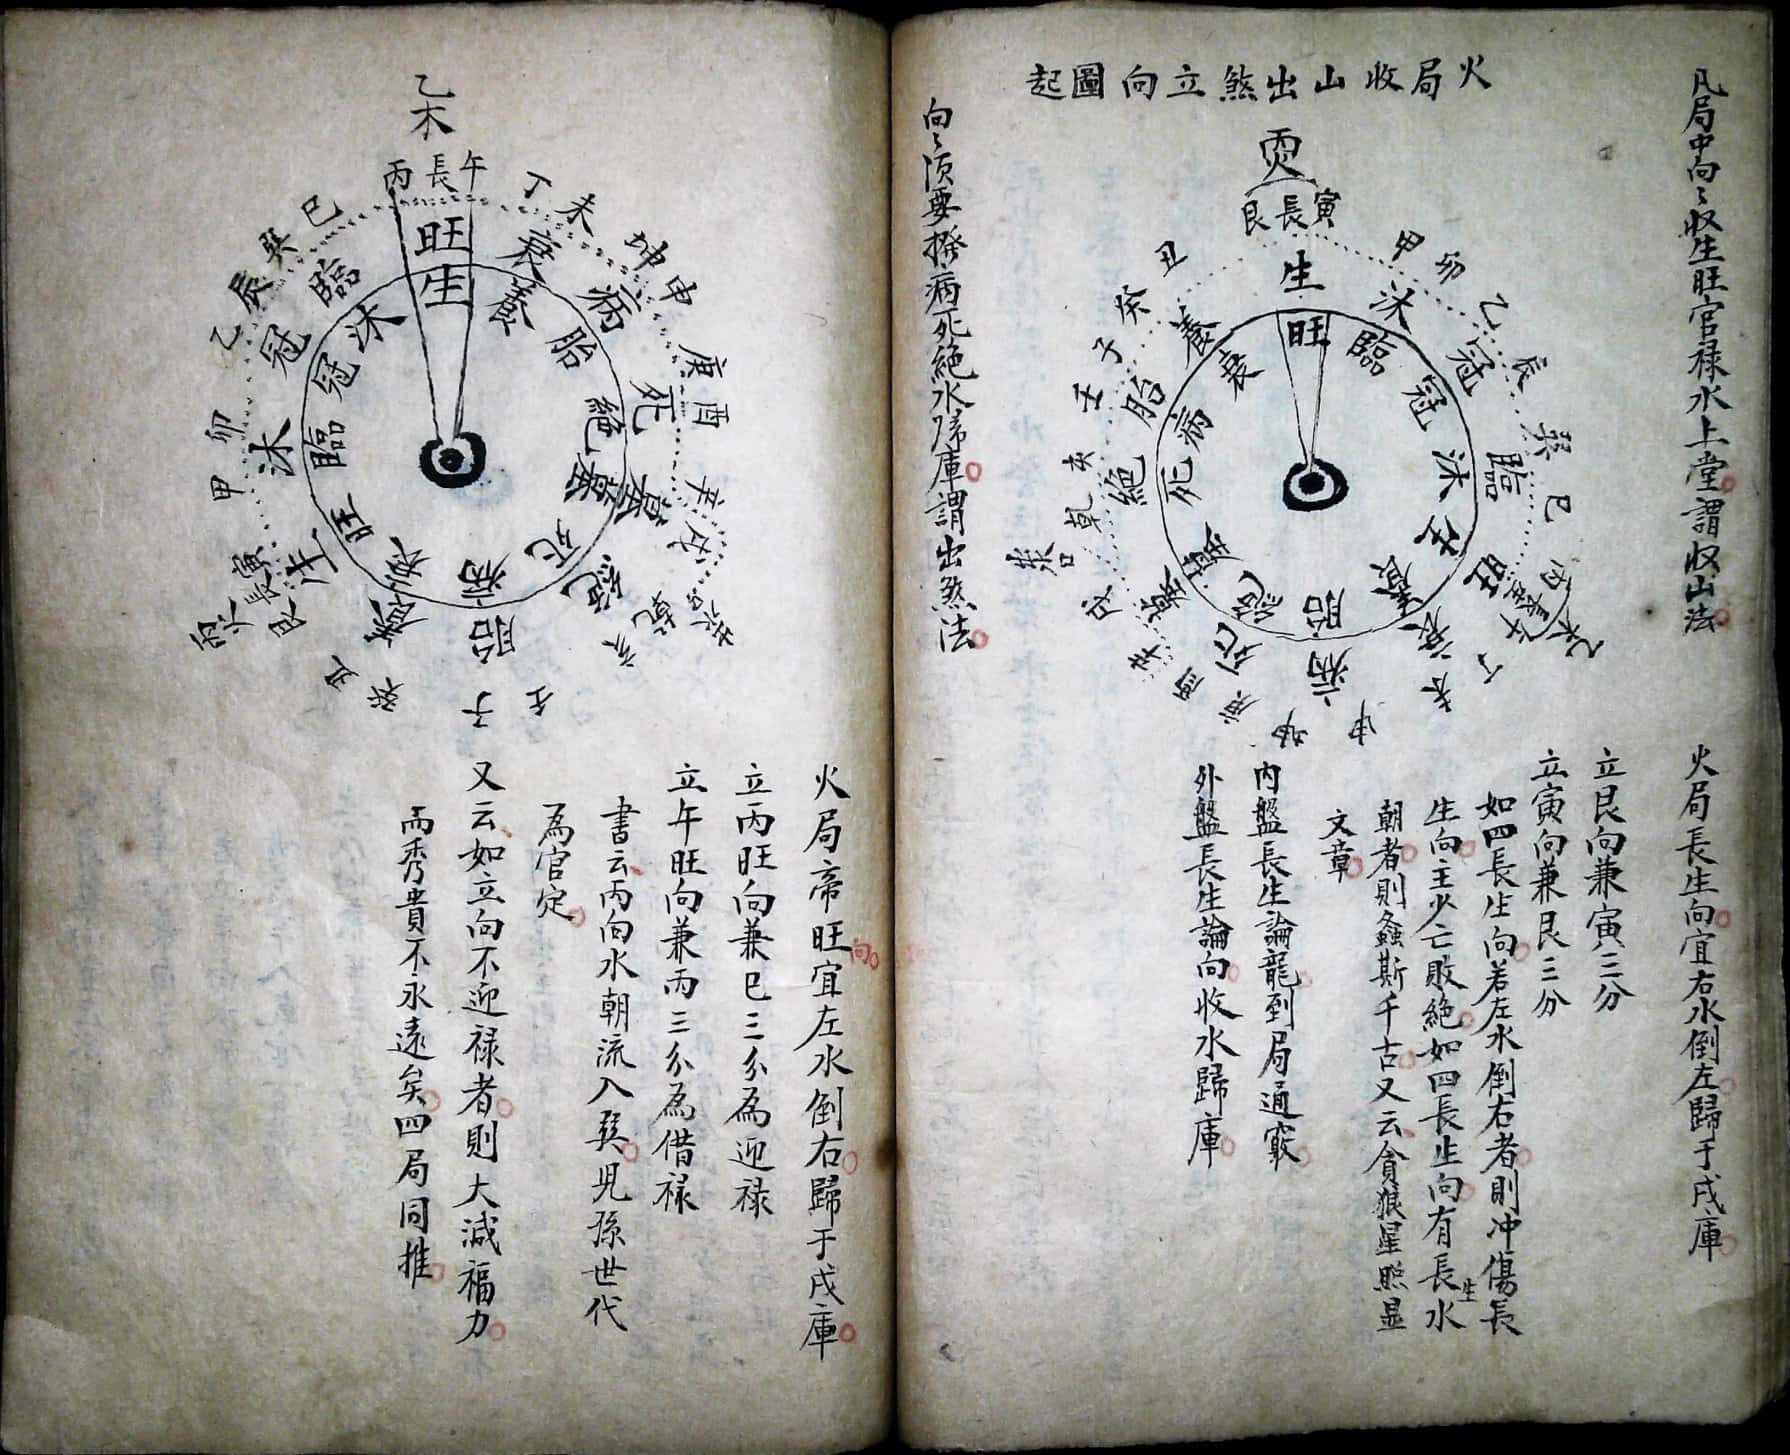 凡局中向〻收生旺官禄水上堂謂收山法
火局收山出煞立向圖起
向〻須要撥病死絶水歸庫謂出煞法
丙火
艮長寅
甲
卯
乙
辰
巽
巳
丙長午
乙木
丁
未
申
坤
庚
酉
辛
戌
乾
亥
壬
子
癸
丑
生
沐
冠
臨
旺
衰
病
死
墓
絶
胎
養
旺
臨
冠
沐
生
養
胎
絶
墓
死
病
衰
火局長生向宜右水倒左歸于戌庫
立艮向兼寅三分
立寅向兼艮三分
如四長生向若左水倒右者則冲傷長
生向主少亡敗絶如四長生向有長生水
朝者則螽斯千古又云貪狼星照显
文章
內盤長生論龍到局通竅
外盤長生論向收水歸庫
乙木
丙長午
丁
未
坤
申
庚
酉
辛
戌
乾
亥
壬
子
癸
丑
艮長寅
丙火
甲
卯
乙
辰
巽
巳
旺
衰
病
死
墓
絶
胎
養
生
沐
冠
臨
生
養
胎
絶
墓
死
病
衰
旺
臨
冠
沐
火局帝旺向宜左水倒右歸于戌庫
立丙旺向兼巳三分為迎禄
立午旺向兼丙三分為借禄
書云丙向水朝流入巽児孫世代
為官定
又云如立向不迎禄者則大減福力
而秀貴不永遠矣四局同推